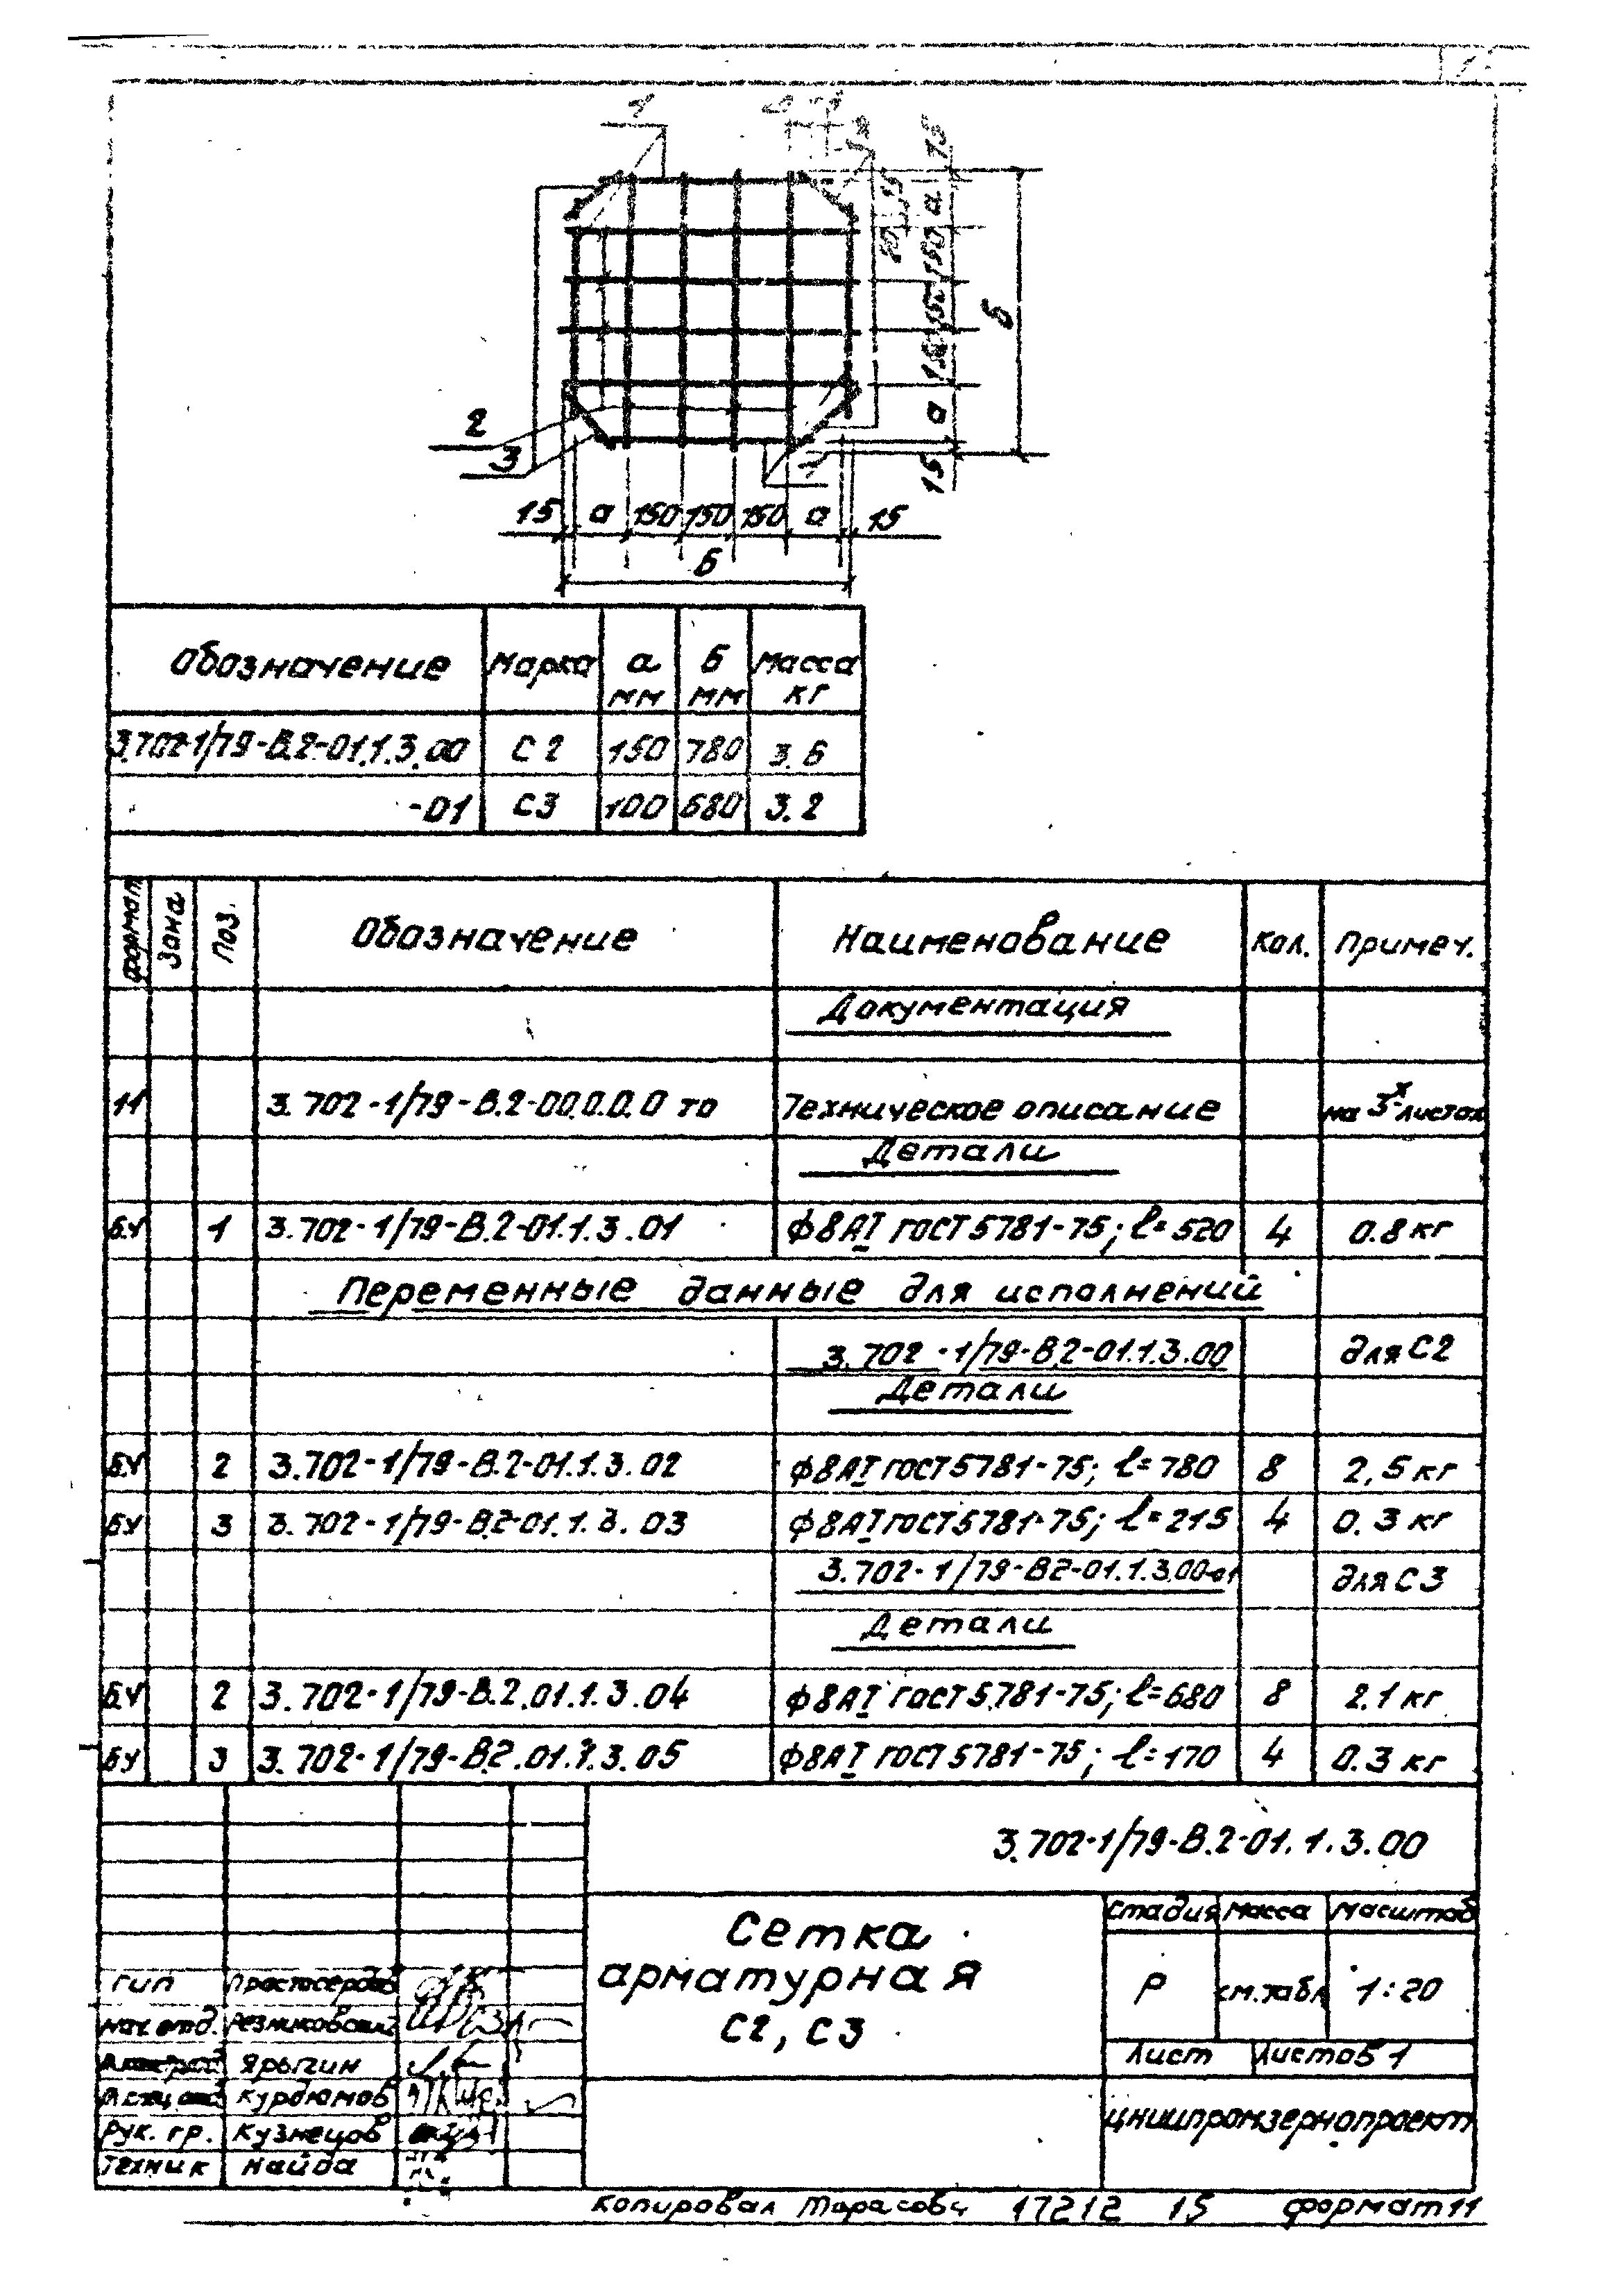 1
2
3
1
15 а 150 150 150 а 15
Б
15
а
150
150
150
а
15
Б
Обозначение Марка а мм Б мм Масса кг
3.702-1/79-В.2-01.1.3.00 С2 150 780 3.6
-01 С3 100 680 3.2
Формат Зона Поз. Обозначение Наименование Кол. Примеч.
Документация
11 3.702-1/79-В.2-00.0.0.0 ТО Техническое описание на 3х листах
Детали
БЧ 1 3.702-1/79-В.2-01.1.3.01 Ф8АI ГОСТ 5781-75; l=520 4 0.8 кг
Переменные данные для исполнений
3.702-1/79-В2-01.1.3.00 для С2
Детали
БЧ 2 3.702-1/79-В.2-01.1.3.02 Ф8АI ГОСТ 5781-75; l=780 8 2,5 кг
БЧ 3 3.702-1/79-В.2-01.1.3.03 Ф8АI ГОСТ 5781-75; l=215 4 0.3 кг
3.702-1/79-В2-01.1.3.00-01 для С3
Детали
БЧ 2 3.702-1/79-В.2.01.1.3.04 Ф8АI ГОСТ 5781-75; l=680 8 2.1 кг
БЧ 3 3.702-1/79-В.2.01.1.3.05 Ф8АI ГОСТ 5781-75; l=170 4 0.3 кг
3.702-1/79-В.2-01.1.3.00
Сетка
арматурная
С2, С3
Стадия Масса Масштаб
Р см.табл 1:20
Лист Листов 1
ЦНИИпромзернопроект
ГИП Простосердов
Нач. отд. Резниковский
Ярыгин
Курдюмов
Рук. гр. Кузнецов
Техник Найда
Копировал Тарасова 17212 15 формат 11